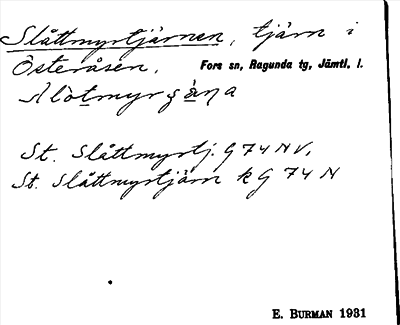 Slåttmyrtjärnen, tjärn i
Österåsen. Fors sn, Ragunda tg, Jämtl. l.
St. Slåttmyrtj. G 74 N V.
St. Slåttmyrtjärn k G 74 N
E. BURMAN 1931